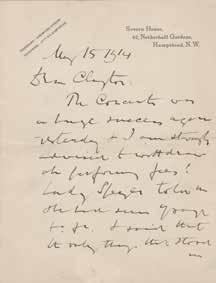 Severn House,
42, Netherhall Gardens,
Hampstead, N.W.
May 15 1914
Dear Clayton:
The Concerto was
a huge success again
yesterday & I am strongly
advised to withdraw
the performing fees!
Lady Speyer told us
she had seen
& said that
the only thing that stood
in